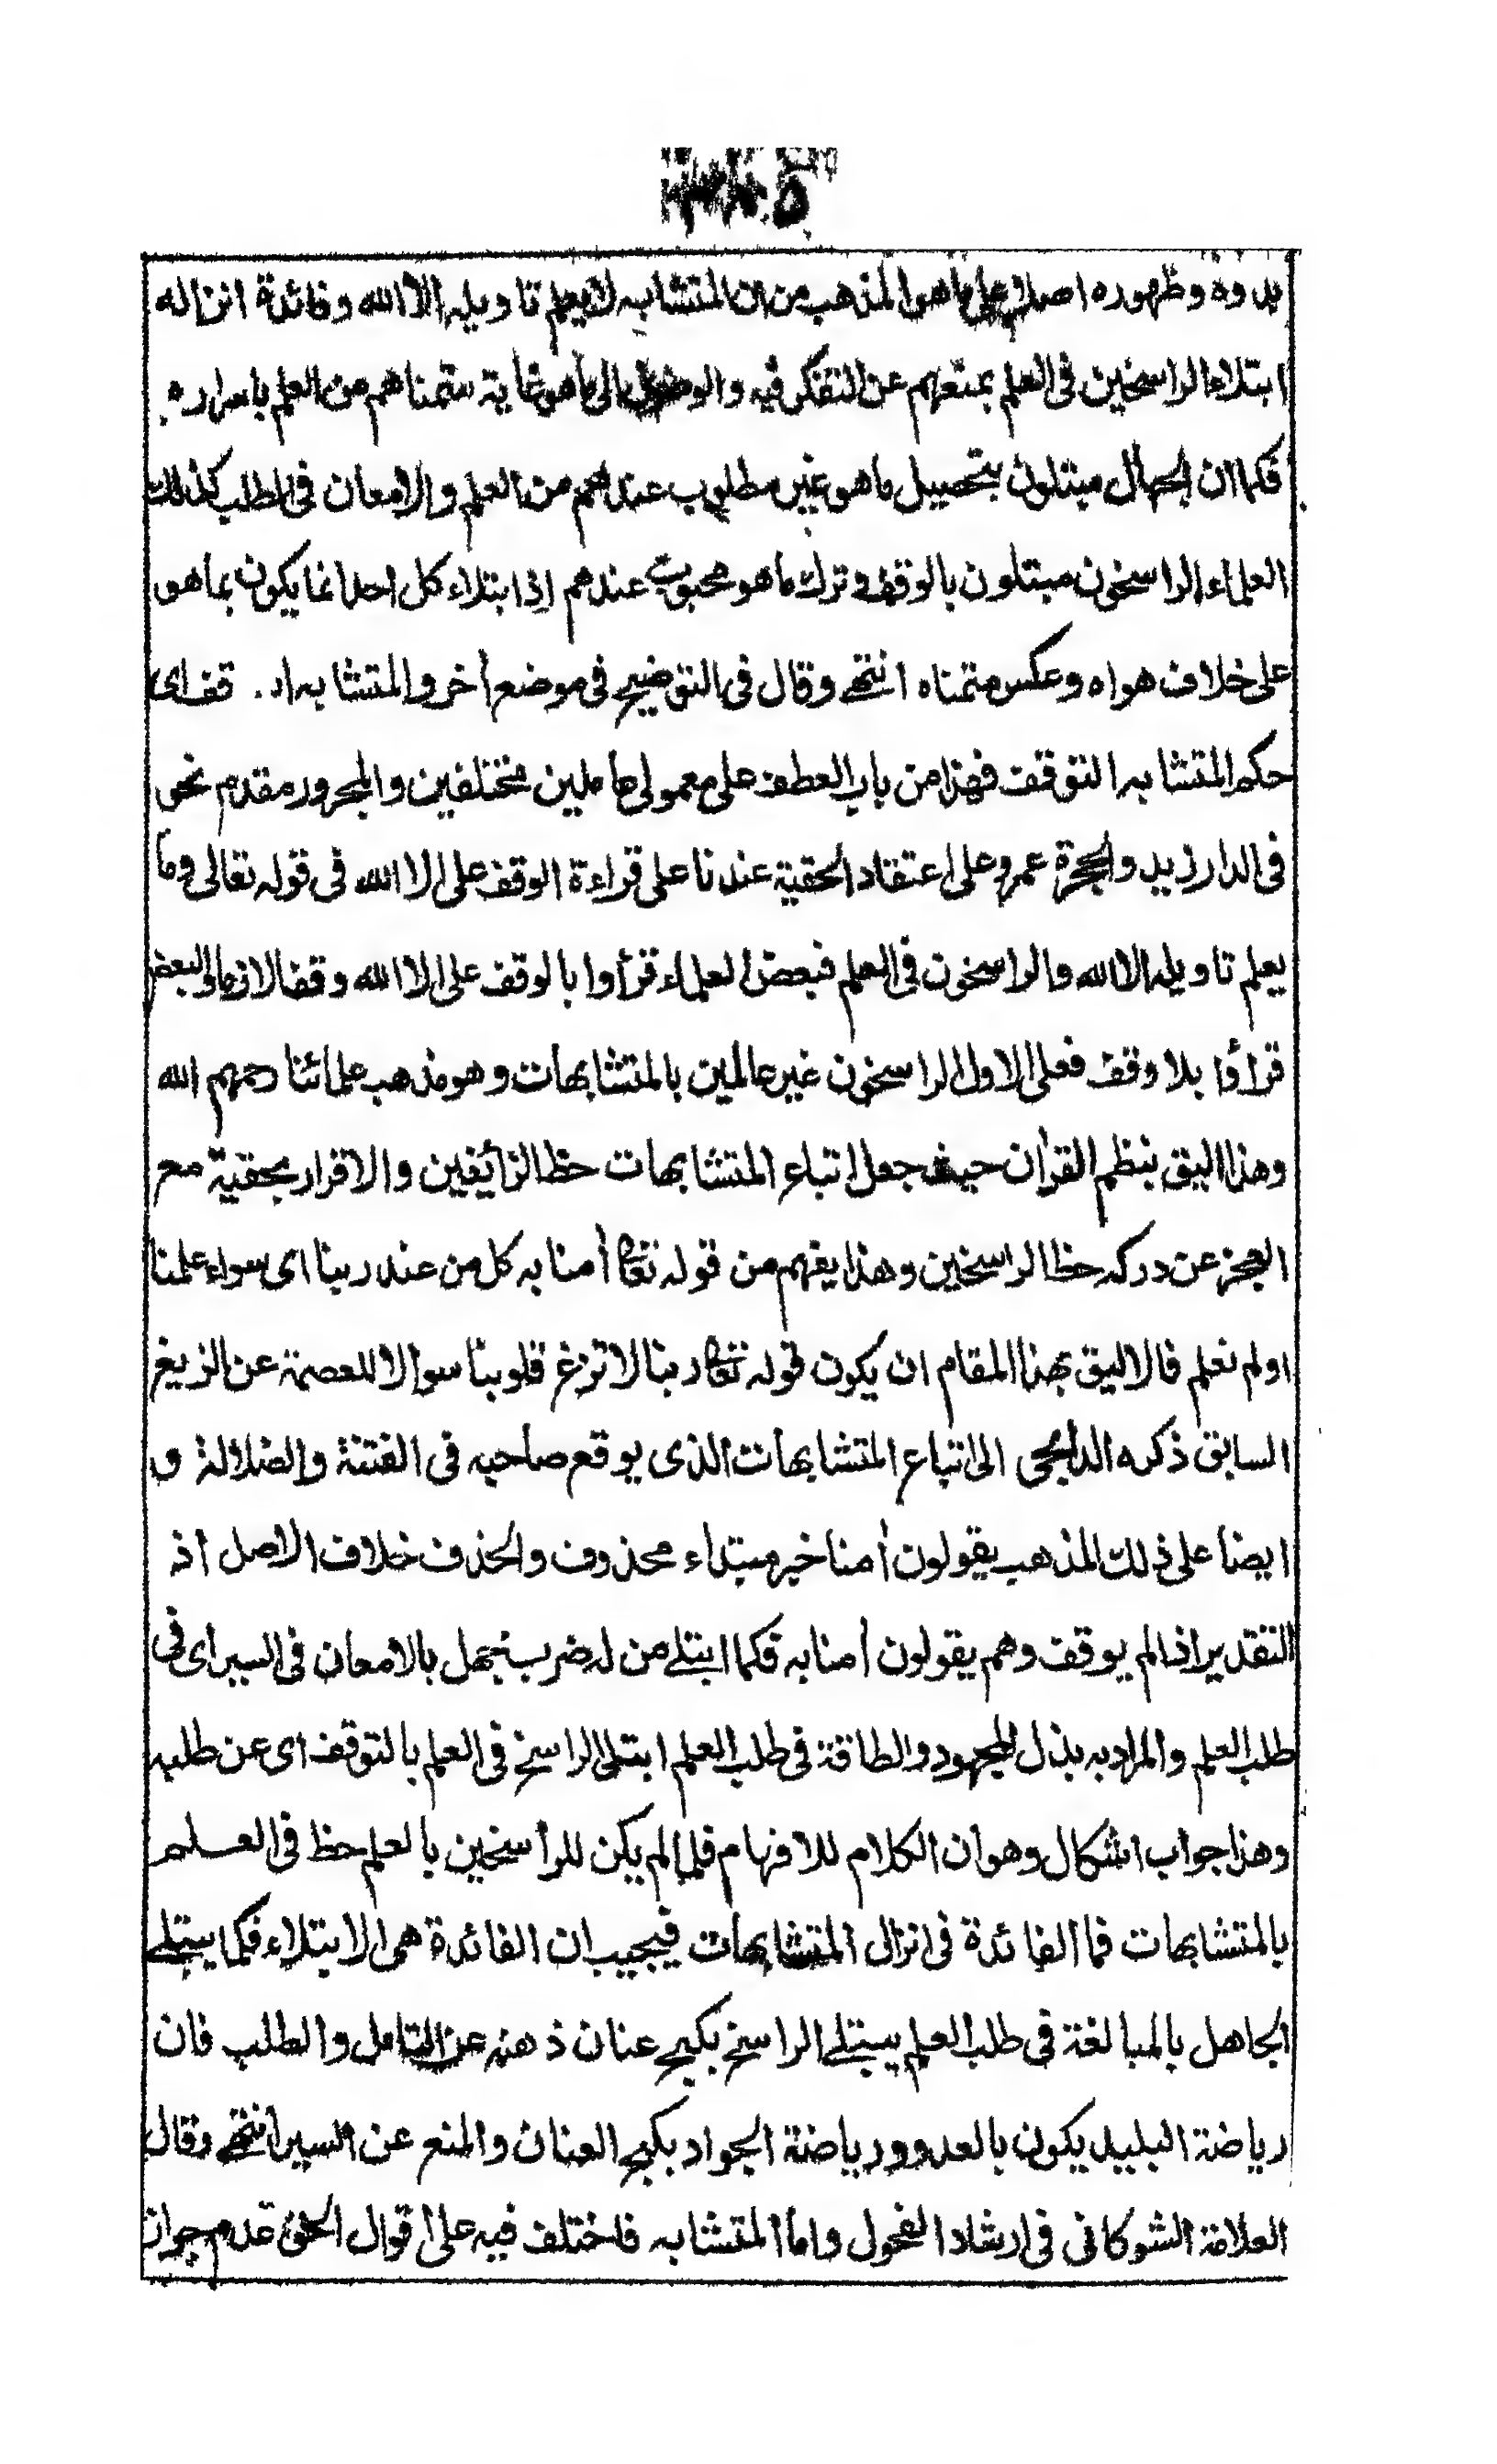 بدوه وظهوره اصلا على ما هو المذهب من ان المتشابه لا يعلم تاويله الا الله وفائدة انزاله
ابتلاء الراسخين فى العلم بمنعهم عن التفكر فيه والوصول الى ما هو غاية متمناهم من العلم باسراره
فكما ان الجهال مبتلون بتحصيل ما هو غير مطلوب عندهم من العلم والامعان فى الطلب كذلك
العلماء الراسخون مبتلون بالوقف وترك ما هو محبوب عندهم اذا ابتلاء كل احد انما يكون بما هو
على خلاف هواه وعكس متمناه انتهے وقال فى التوضيح فى موضع أخر والمتشابه اى
حكم المتشابه التوقف فهذا من باب العطف على معمولى عاملين مختلفين والمجرور مقدم نحو
فى الدار زيد والحجرة عمرو على اعتقاد الحقية عندنا على قراءة الوقف على الا الله فى قوله تعالى وما
يعلم تاويله الا الله والراسخون فى العلم فبعض العلماء قرأوا بالوقف على الا الله وقفا لازما والبعض
قرأوا بلا وقف فعلى الاول الراسخون غير عالمين بالمتشابهات وهو مذهب علمائنا رحمهم الله
وهذا اليق بنظم القرأن حيث جعل اتباع المتشابهات حظ الزائغين والاقرار بحقيته مع
العجز عن دركه حظ الراسخين وهذا يفهم من قوله تعا أمنا به كل من عند ربنا اى سواء علمنا
اولم نعلم فالاليق بهذا المقام ان يكون قوله تعا ربنا لا تزغ قلوبنا سوالا للعصمة عن الزيغ
السابق ذكره الداعى الى اتباع المتشابهات الذى يوقع صاحبه فى الفتنة والضلالة و
ايضا على ذلك المذهب يقولون أمنا خبر مبتداء محذوف والحذف خلاف الاصل اذ
التقدير اذا لم يوقف وهم يقولون أمنا به فكما ابتلى من له ضرب جهل بالامعان فى السير اى فى
طلب العلم والمراد به بذل المجهود والطاقة فى طلب العلم ابتلى الراسخ فى العلم بالتوقف اى عن طلبه
وهذا جواب اشكال وهو ان الكلام للافهام فلما لم يكن للراسخين بالعلم حظ فى العلم
بالمتشابهات فما الفائدة فى انزال المتشابهات فيجيب ان الفائدة هى الابتلاء فكما يبتلے
الجاهل بالمبالغة فى طلب العلم يبتلے الراسخ بكبح عنان ذهنه عن التامل والطلب فان
رياضة البليد يكون بالعدو ورياضة الجواد بكبح العنان والمنع عن السير انتهے وقال
العلامة الشوكانى فى ارشاد الفحول واما المتشابه فاختلف فيه على أقوال الحق عدم جواز